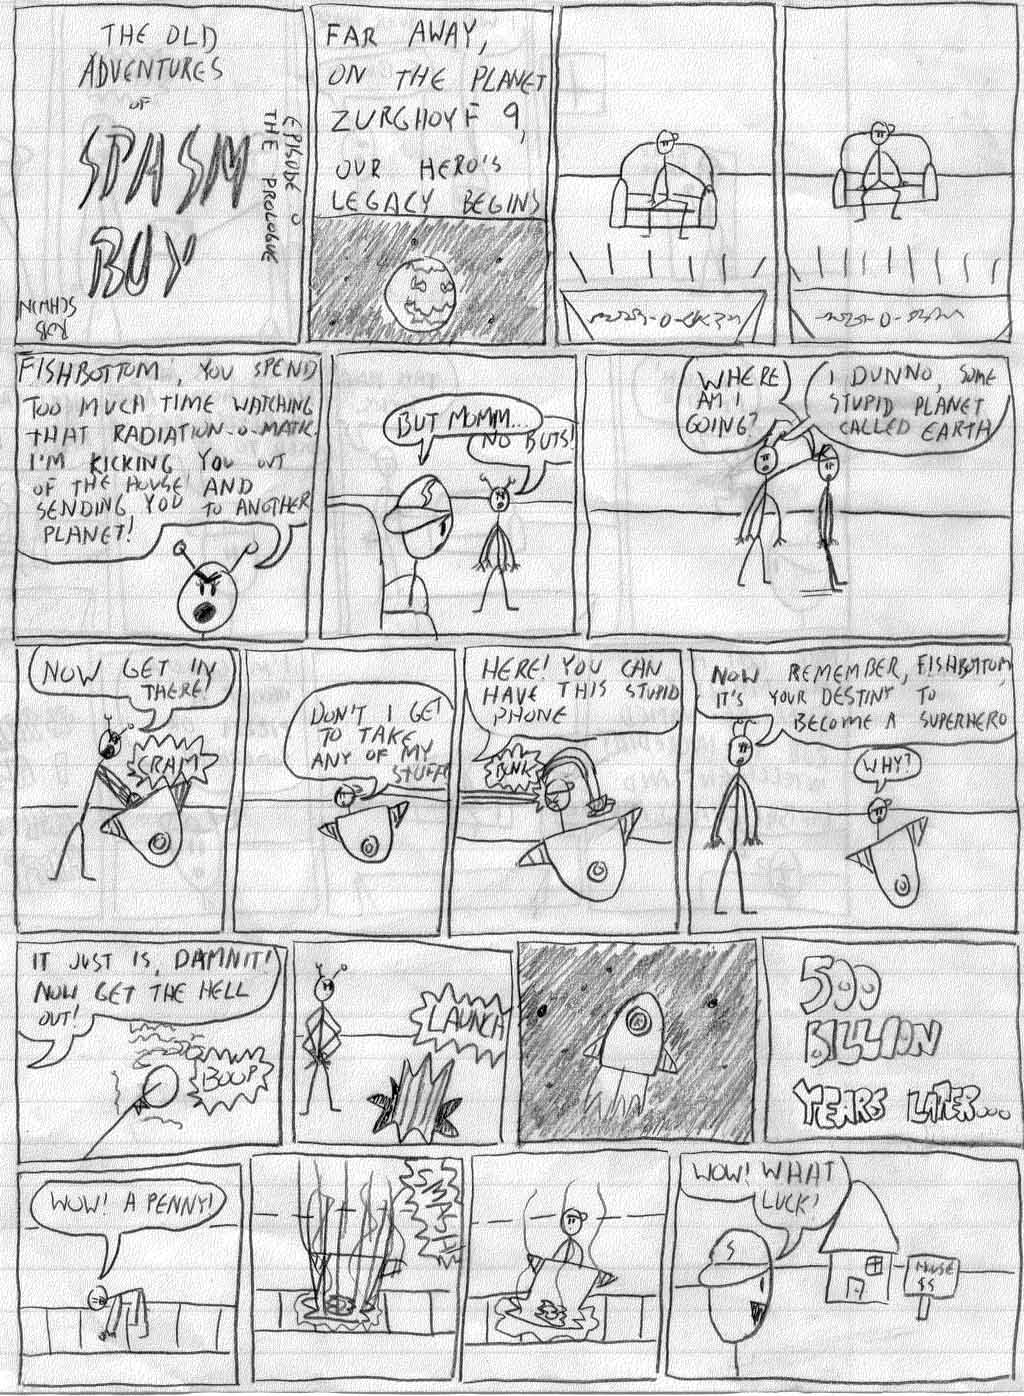 THE OLD
ADVENTURES
OF
SPASM
BUY
EPISODE 0
THE PROLOGUE
FAR AWAY,
ON THE PLANET
ZURGHOYF 9,
OUR HERO'S
LEGACY BEGINS
FISHBOTTOM, YOU SPEND
TOO MUCH TIME WATCHING
THAT RADIATION-O-MATIC.
I'M KICKING YOU OUT
OF THE HOUSE AND
SENDING YOU TO ANOTHER
PLANET!
BUT MOMM...
NO BUTS!
WHERE
AM I
GOING?
I DUNNO, SOME
STUPID PLANET
CALLED EARTH
NOW GET IN
THERE!
CRAM
DON'T I GET
TO TAKE
ANY OF MY
STUFF?
HERE! YOU CAN
HAVE THIS STUPID
PHONE
BONK
NOW REMEMBER, FISHBOTTOM,
IT'S YOUR DESTINY TO
BECOME A SUPERHERO
WHY?
IT JUST IS, DAMNIT!
NOW GET THE HELL
OUT!
BOOP
LAUNCH
500
BILLION
YEARS LATER...
WOW! A PENNY!
SMASH!
WOW! WHAT
LUCK!
S
HOUSE
$5